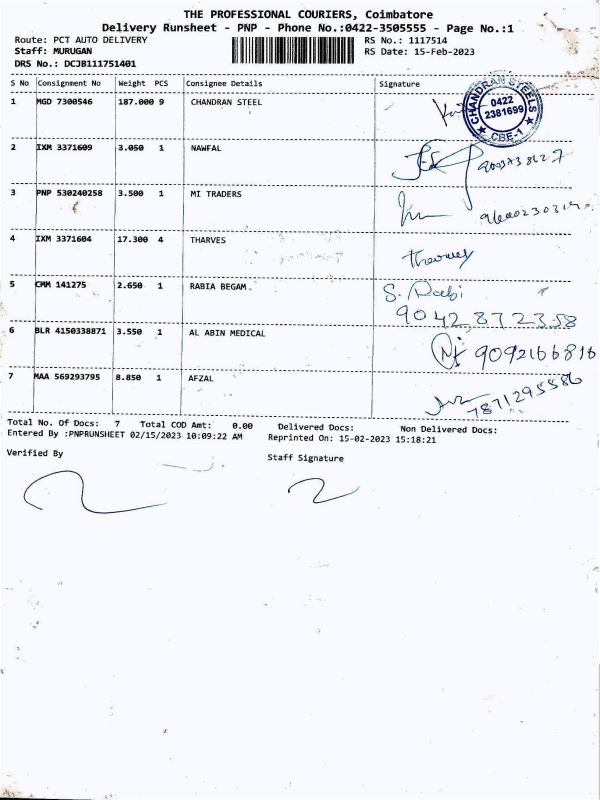 THE PROFESSIONAL COURIERS, Coimbatore
Delivery Runsheet - PNP - Phone No.:0422-3505555 - Page No.:1
Route: PCT AUTO DELIVERY RS No.: 1117514
Staff: MURUGAN RS Date: 15-Feb-2023
DRS No.: DCJB111751401
S No Consignment No Weight PCS Consignee Details Signature
1 MGD 7300546 187.000 9 CHANDRAN STEEL
CHANDRAN STEELS
0422
2381699
★ CBE-1 ★
2 IXM 3371609 3.050 1 NAWFAL
3 PNP 530240258 3.500 1 MI TRADERS
4 IXM 3371604 17.300 4 THARVES
5 CMM 141275 2.650 1 RABIA BEGAM S. Rabi
9042872358
6 BLR 4150338871 3.550 1 AL ABIN MEDICAL 9092166816
7 MAA 569293795 8.850 1 AFZAL 7871295586
Total No. Of Docs: 7 Total COD Amt: 0.00 Delivered Docs: Non Delivered Docs:
Entered By :PNPRUNSHEET 02/15/2023 10:09:22 AM Reprinted On: 15-02-2023 15:18:21
Verified By Staff Signature